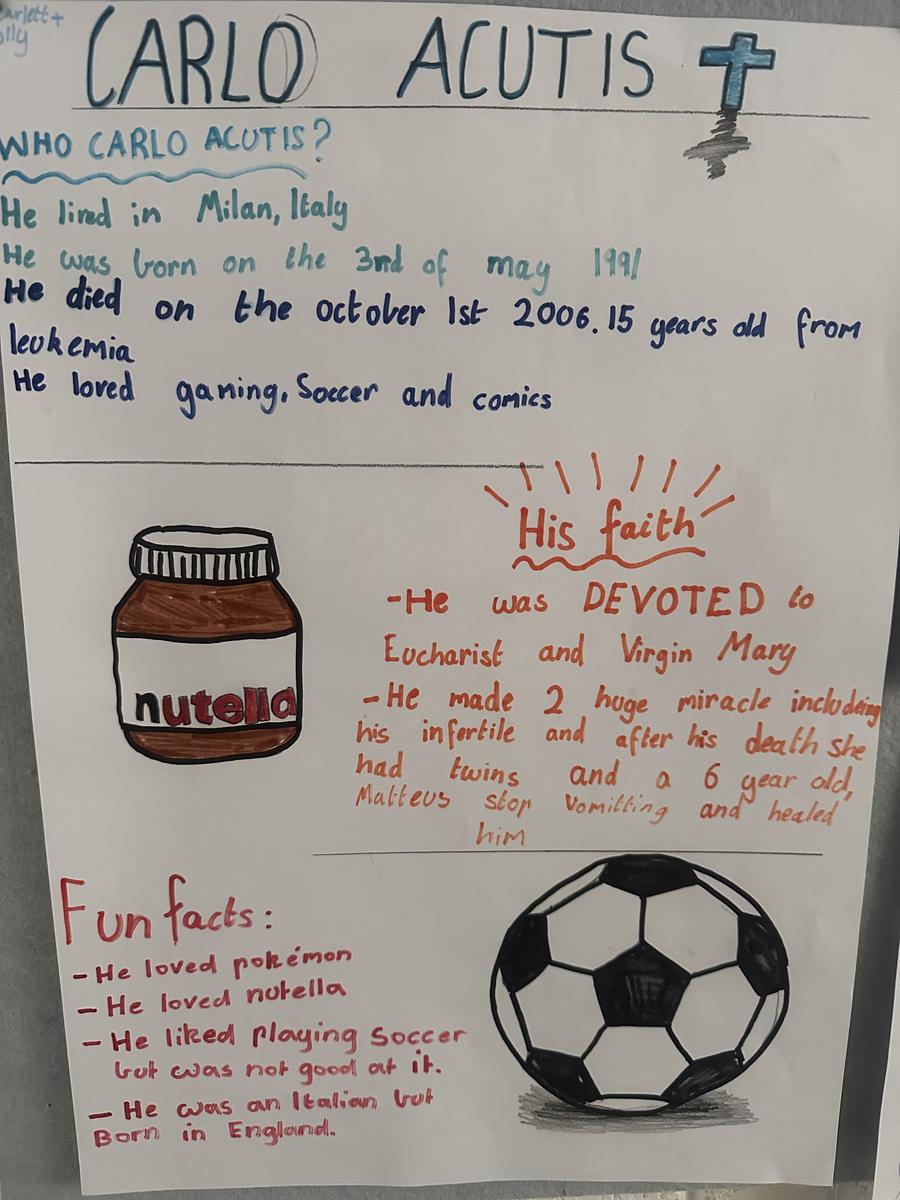 CARLO ACUTIS
WHO CARLO ACUTIS?
He lived in Milan, Italy
He was born on the 3rd of may 1991
He died on the october 1st 2006. 15 years old from
leukemia
He loved gaming, Soccer and comics
His faith
-He was DEVOTED to
Eucharist and Virgin Mary
-He made 2 huge miracle including
his infertile and after his death she
had twins and a 6 year old,
Matteus stop vomitting and healed
him
nutella
Fun facts:
-He loved pokémon
-He loved nutella
-He liked playing soccer
but was not good at it.
-He was an Italian but
Born in England.